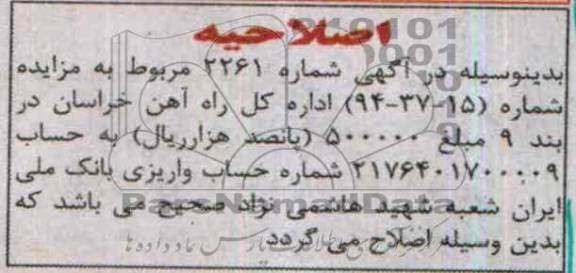 اصلاحیه
بدینوسیله در آگهی شماره ۲۲۶۱ مربوط به مزایده
شماره (۱۵-۳۷-۹۴) اداره کل راه آهن خراسان در
بند ۹ مبلغ ۵۰۰۰۰۰ (پانصد هزارریال) به حساب
۲۱۷۶۴۰۱۷۰۰۰۰۹ شماره حساب واریزی بانک ملی
ایران شعبه شهید هاشمی نژاد صحیح می باشد که
بدین وسیله اصلاح می گردد
ParsNamadData